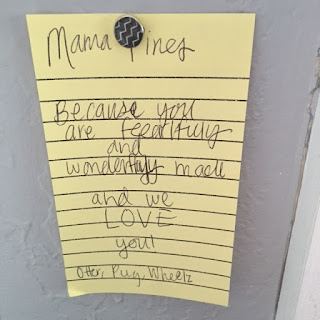 Mama Pines
Because you
are fearfully
and
wonderfully made
and we
LOVE
you!
Otter, Pug, Wheelz